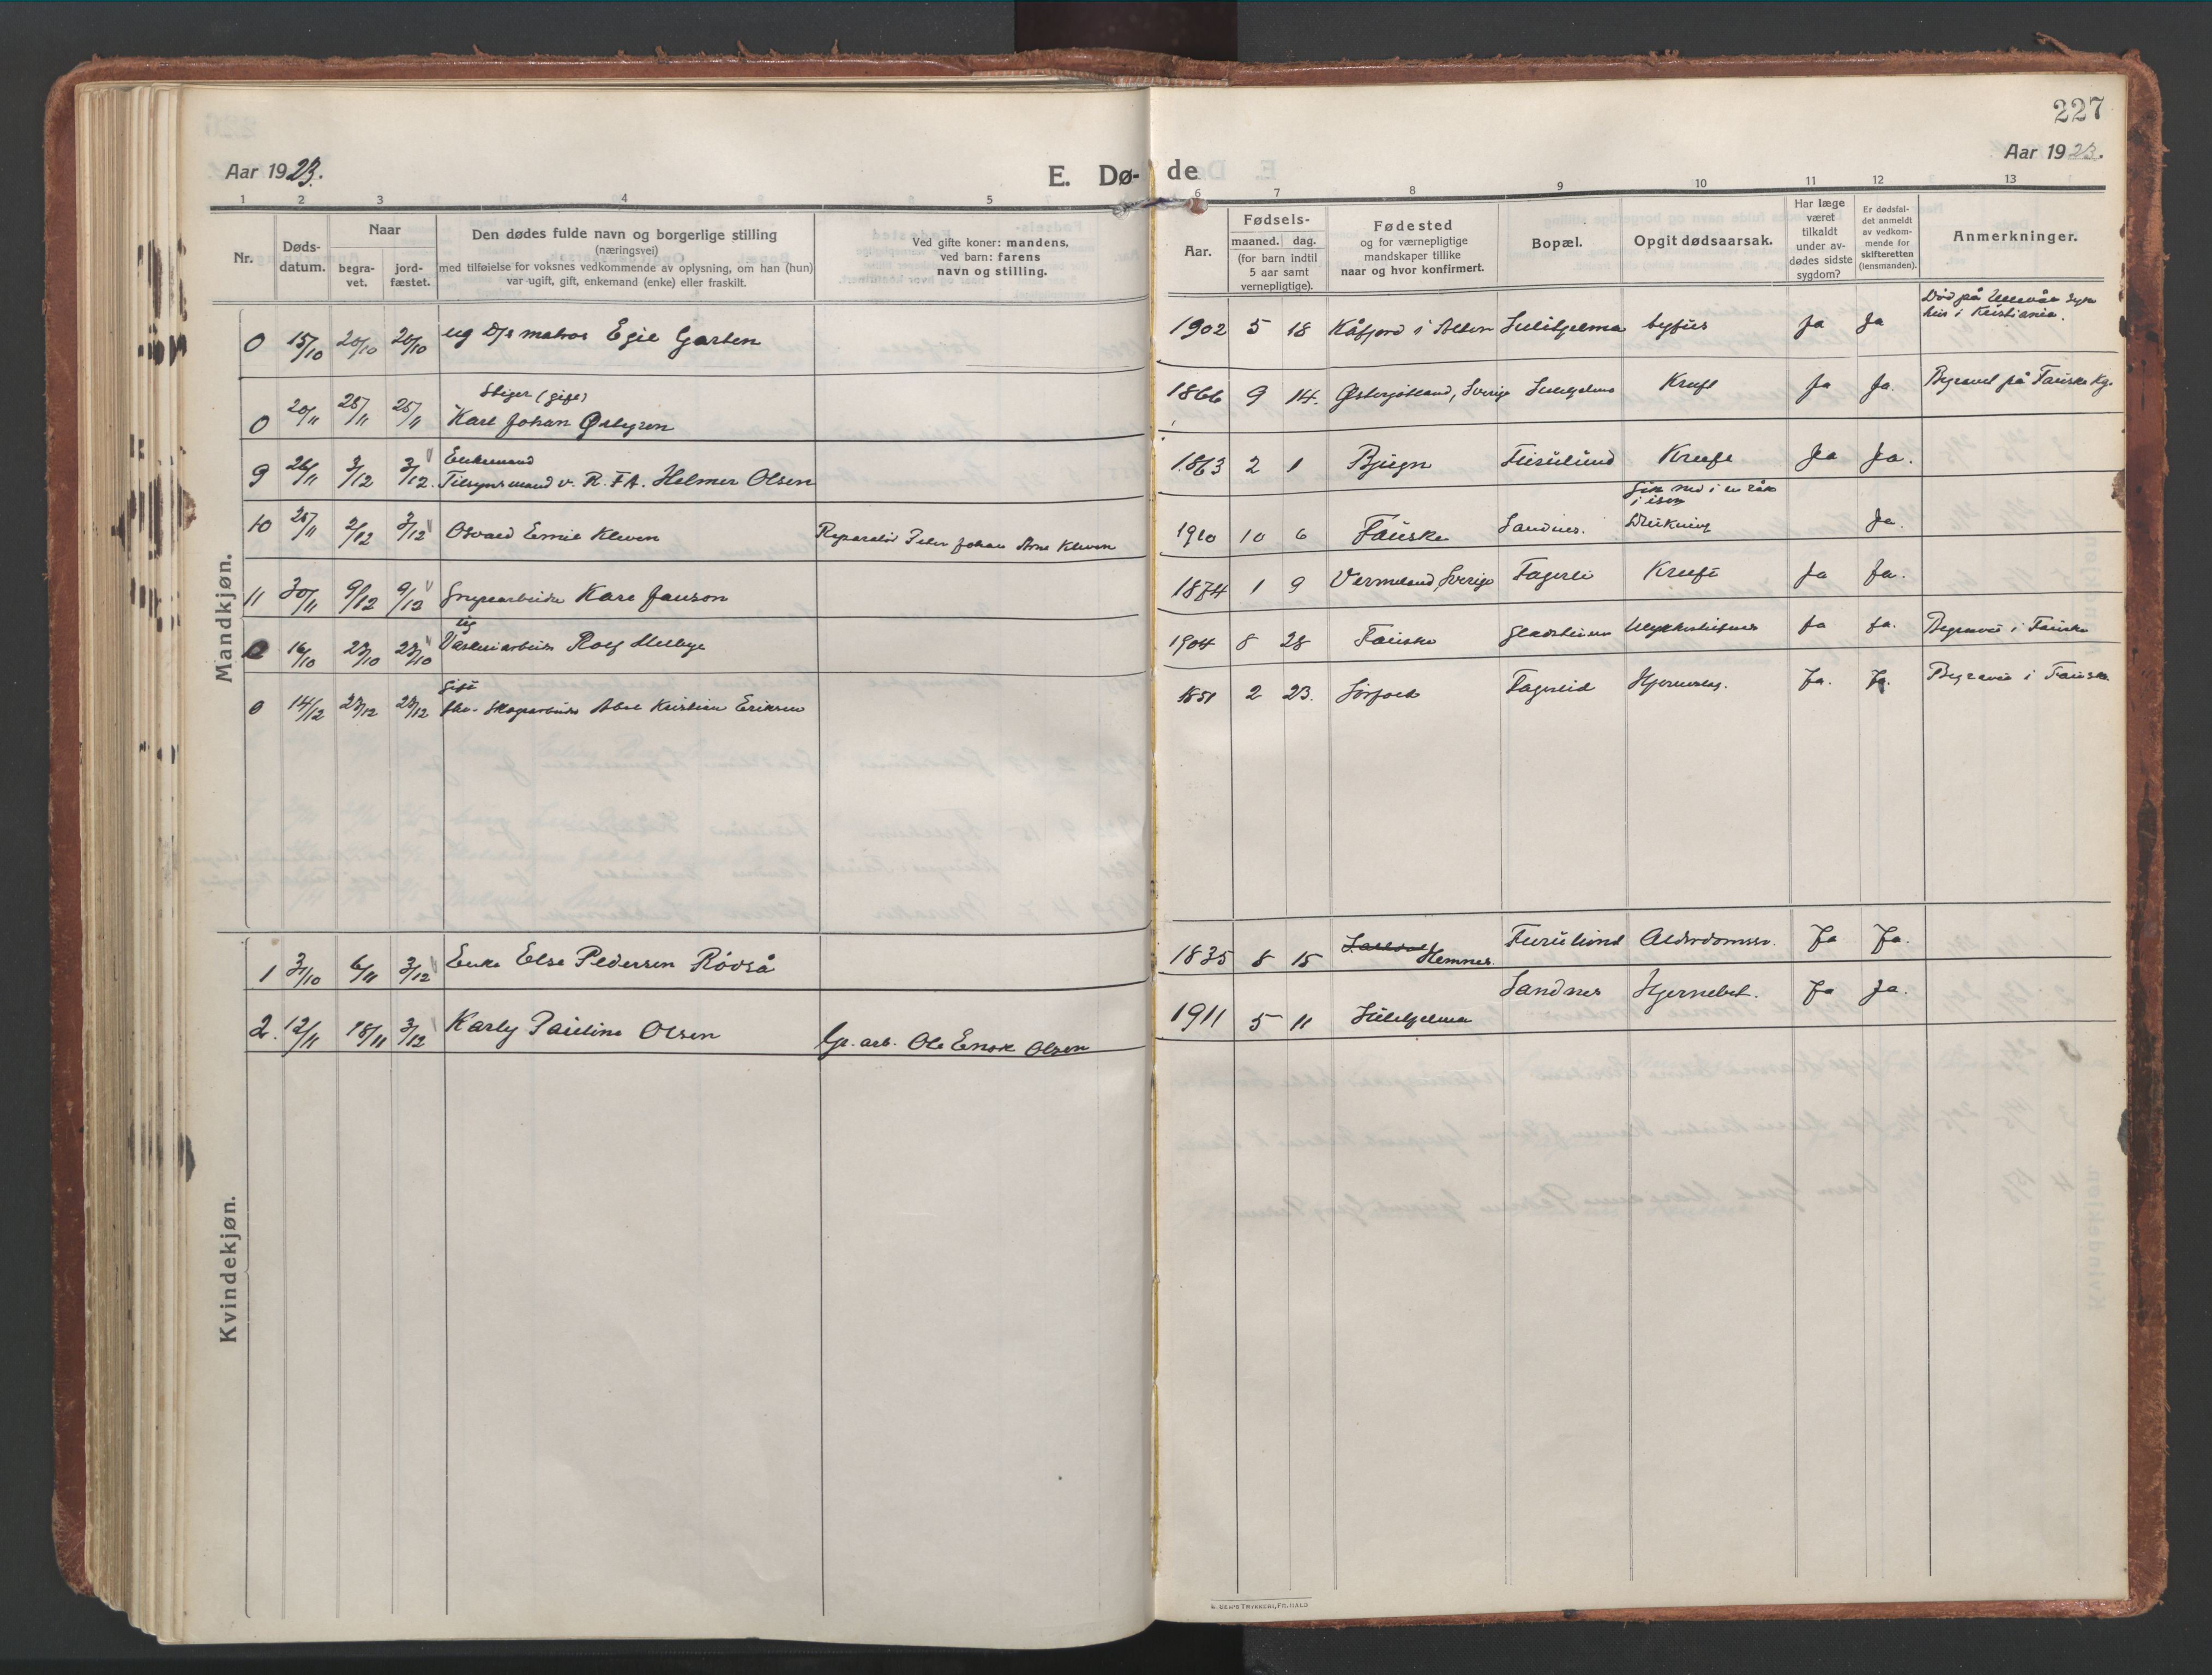 227
Aar 1923. E. Dø- de Aar 1923.
1 2 3 4 5 6 7 8 9 10 11 12 13
Nr.
Døds-
datum.
Naar
begra-
vet.
jord-
fæstet.
Den dødes fulde navn og borgerlige stilling
(næringsvei)
med tilføielse for voksnes vedkommende av oplysning, om han (hun)
var ugift, gift, enkemand (enke) eller fraskilt.
Ved gifte koner: mandens,
ved barn: farens
navn og stilling.
Aar.
Fødsels-
maaned. dag.
(for barn indtil
5 aar samt
vernepligtige).
Fødested
og for værnepligtige
mandskaper tillike
naar og hvor konfirmert.
Bopæl.
Opgit dødsaarsak.
Har læge
været
tilkaldt
under av-
dødes sidste
sygdom?
Er dødsfal-
det anmeldt
av vedkom-
mende for
skifteretten
(lensmanden).
Anmerkninger.
Mandkjøn.
0 15/10 20/10 20/10 ug D/s matros Egil Garten 1902 5 18 Kåfjord i Alten Sulitjelma tyfus Ja Ja Død på Ullevål syke
hus i Kristiania.
Stiger (gift)
0 20/11 25/11 25/11 Karl Johan Østgren 1866 9 14. Østergötland, Sverige Sulitjelma Kreft Ja Ja. Begravet på Fauske Kg.
Enkemand
9 26/11 3/12 3/12. Tilsynsmand v. R.T.A. Helmer Olsen 1863 2 1 Bjugn Furulund Kreft Ja Ja.
Gik ned i en råk
i isen
10 25/11 2/12 3/12 Osvald Emil Kleven Reparatør Peter Johan Arne Kleven 1910 10 6 Fauske Sandnes. Drukning Ja.
11 30/11 9/12 9/12 Grubearbeider Karl Janson 1874 1 9 Vermeland, Sverige Fagerli Kreft Ja Ja.
ug
0 16/10 23/10 23/10 Vaskeriarbeider Rolf Melbye 1904 8 28 Fauske Gladstuen Ulykkestilfælde Ja Ja. Begravet i Fauske
Gift
0 14/12 23/12 23/12 fhv. Skogarbeider Abel Kristian Eriksen 1851 2 23. Sørfold Fagerlid Hjerneslag. Ja. Ja. Begravet i Fauske
Kvindekjøn.
1 31/10 6/11 3/12 Enke Else Pedersen Rödså 1835 8 15 Hemnes. Furulund Alderdomssv. Ja Ja.
2. 12/11 18/11 3/12 Karly Pauline Olsen Gr. arb. Ole Enok Olsen 1911 5 11 Sulitjelma Sandnes Hjernebet. Ja Ja.